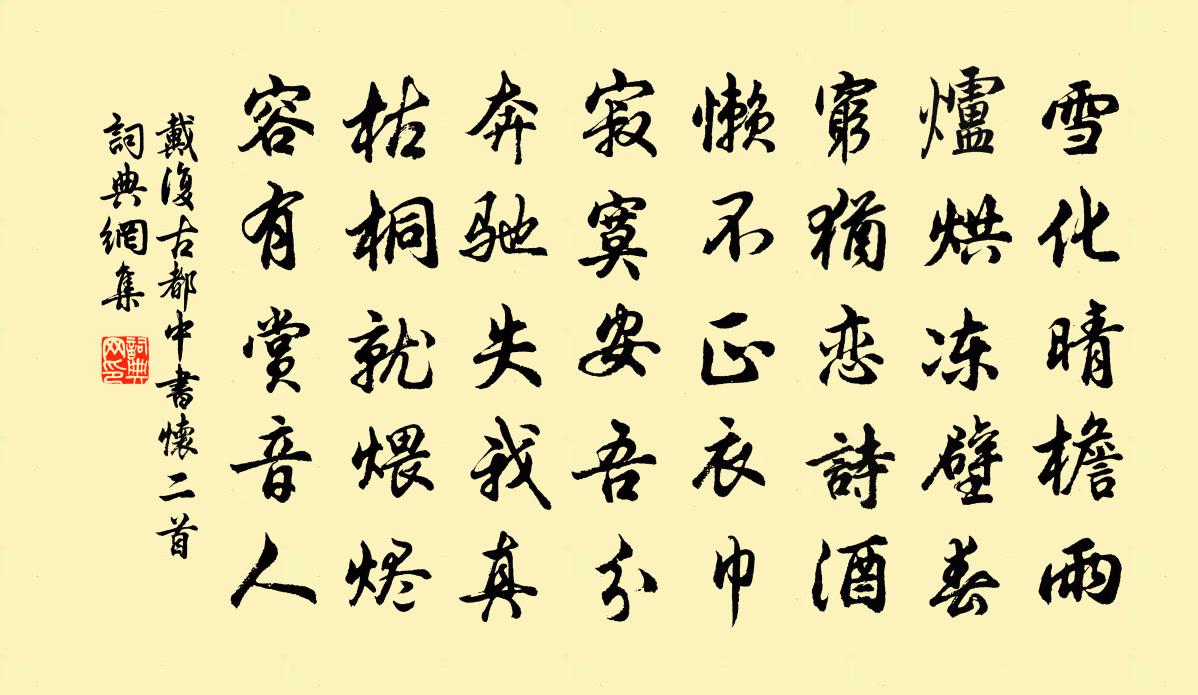 雪化晴檐雨
爐烘冻壁春
窮猶恋詩酒
懒不正衣巾
寂寞安吾分
奔驰失我真
枯桐就煨烬
容有賞音人
戴復古都中書懷二首
詞典網集
詞典网印